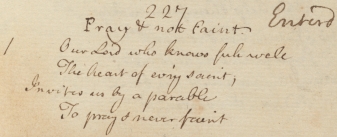 227
Pray & not faint. Enterd
1 Our Lord who knows full well
The heart of evry saint,
Invites us by a parable
To pray & never faint